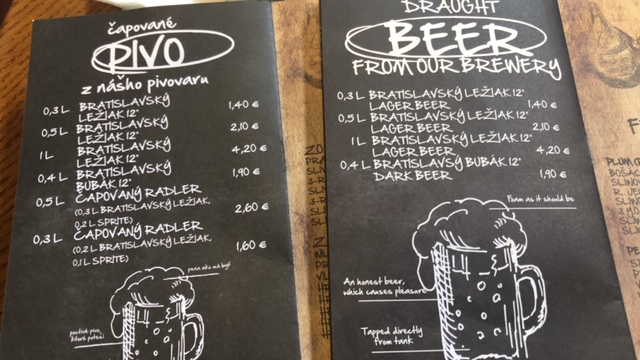 čapované
PIVO
z nášho pivovaru
0,3 L BRATISLAVSKÝ
LEŽIAK 12° 1,40 €
0,5 L BRATISLAVSKÝ
LEŽIAK 12° 2,10 €
1 L BRATISLAVSKÝ
LEŽIAK 12° 4,20 €
0,4 L BRATISLAVSKÝ
BUBÁK 12° 1,90 €
0,5 L ČAPOVANÝ RADLER
(0,3 L BRATISLAVSKÝ LEŽIAK,
0,2 L SPRITE) 2,60 €
0,3 L ČAPOVANÝ RADLER
(0,2 L BRATISLAVSKÝ LEŽIAK,
0,1 L SPRITE) 1,60 €
pena ako má byť
poctivé pivo,
ktoré poteší
DRAUGHT
BEER
FROM OUR BREWERY
0,3 L BRATISLAVSKÝ LEŽIAK 12°
LAGER BEER 1,40 €
0,5 L BRATISLAVSKÝ LEŽIAK 12°
LAGER BEER 2,10 €
1 L BRATISLAVSKÝ LEŽIAK 12°
LAGER BEER 4,20 €
0,4 L BRATISLAVSÝ BUBÁK 12°
DARK BEER 1,90 €
Foam as it should be
An honest beer,
which causes pleasure
Tapped directly
from tank